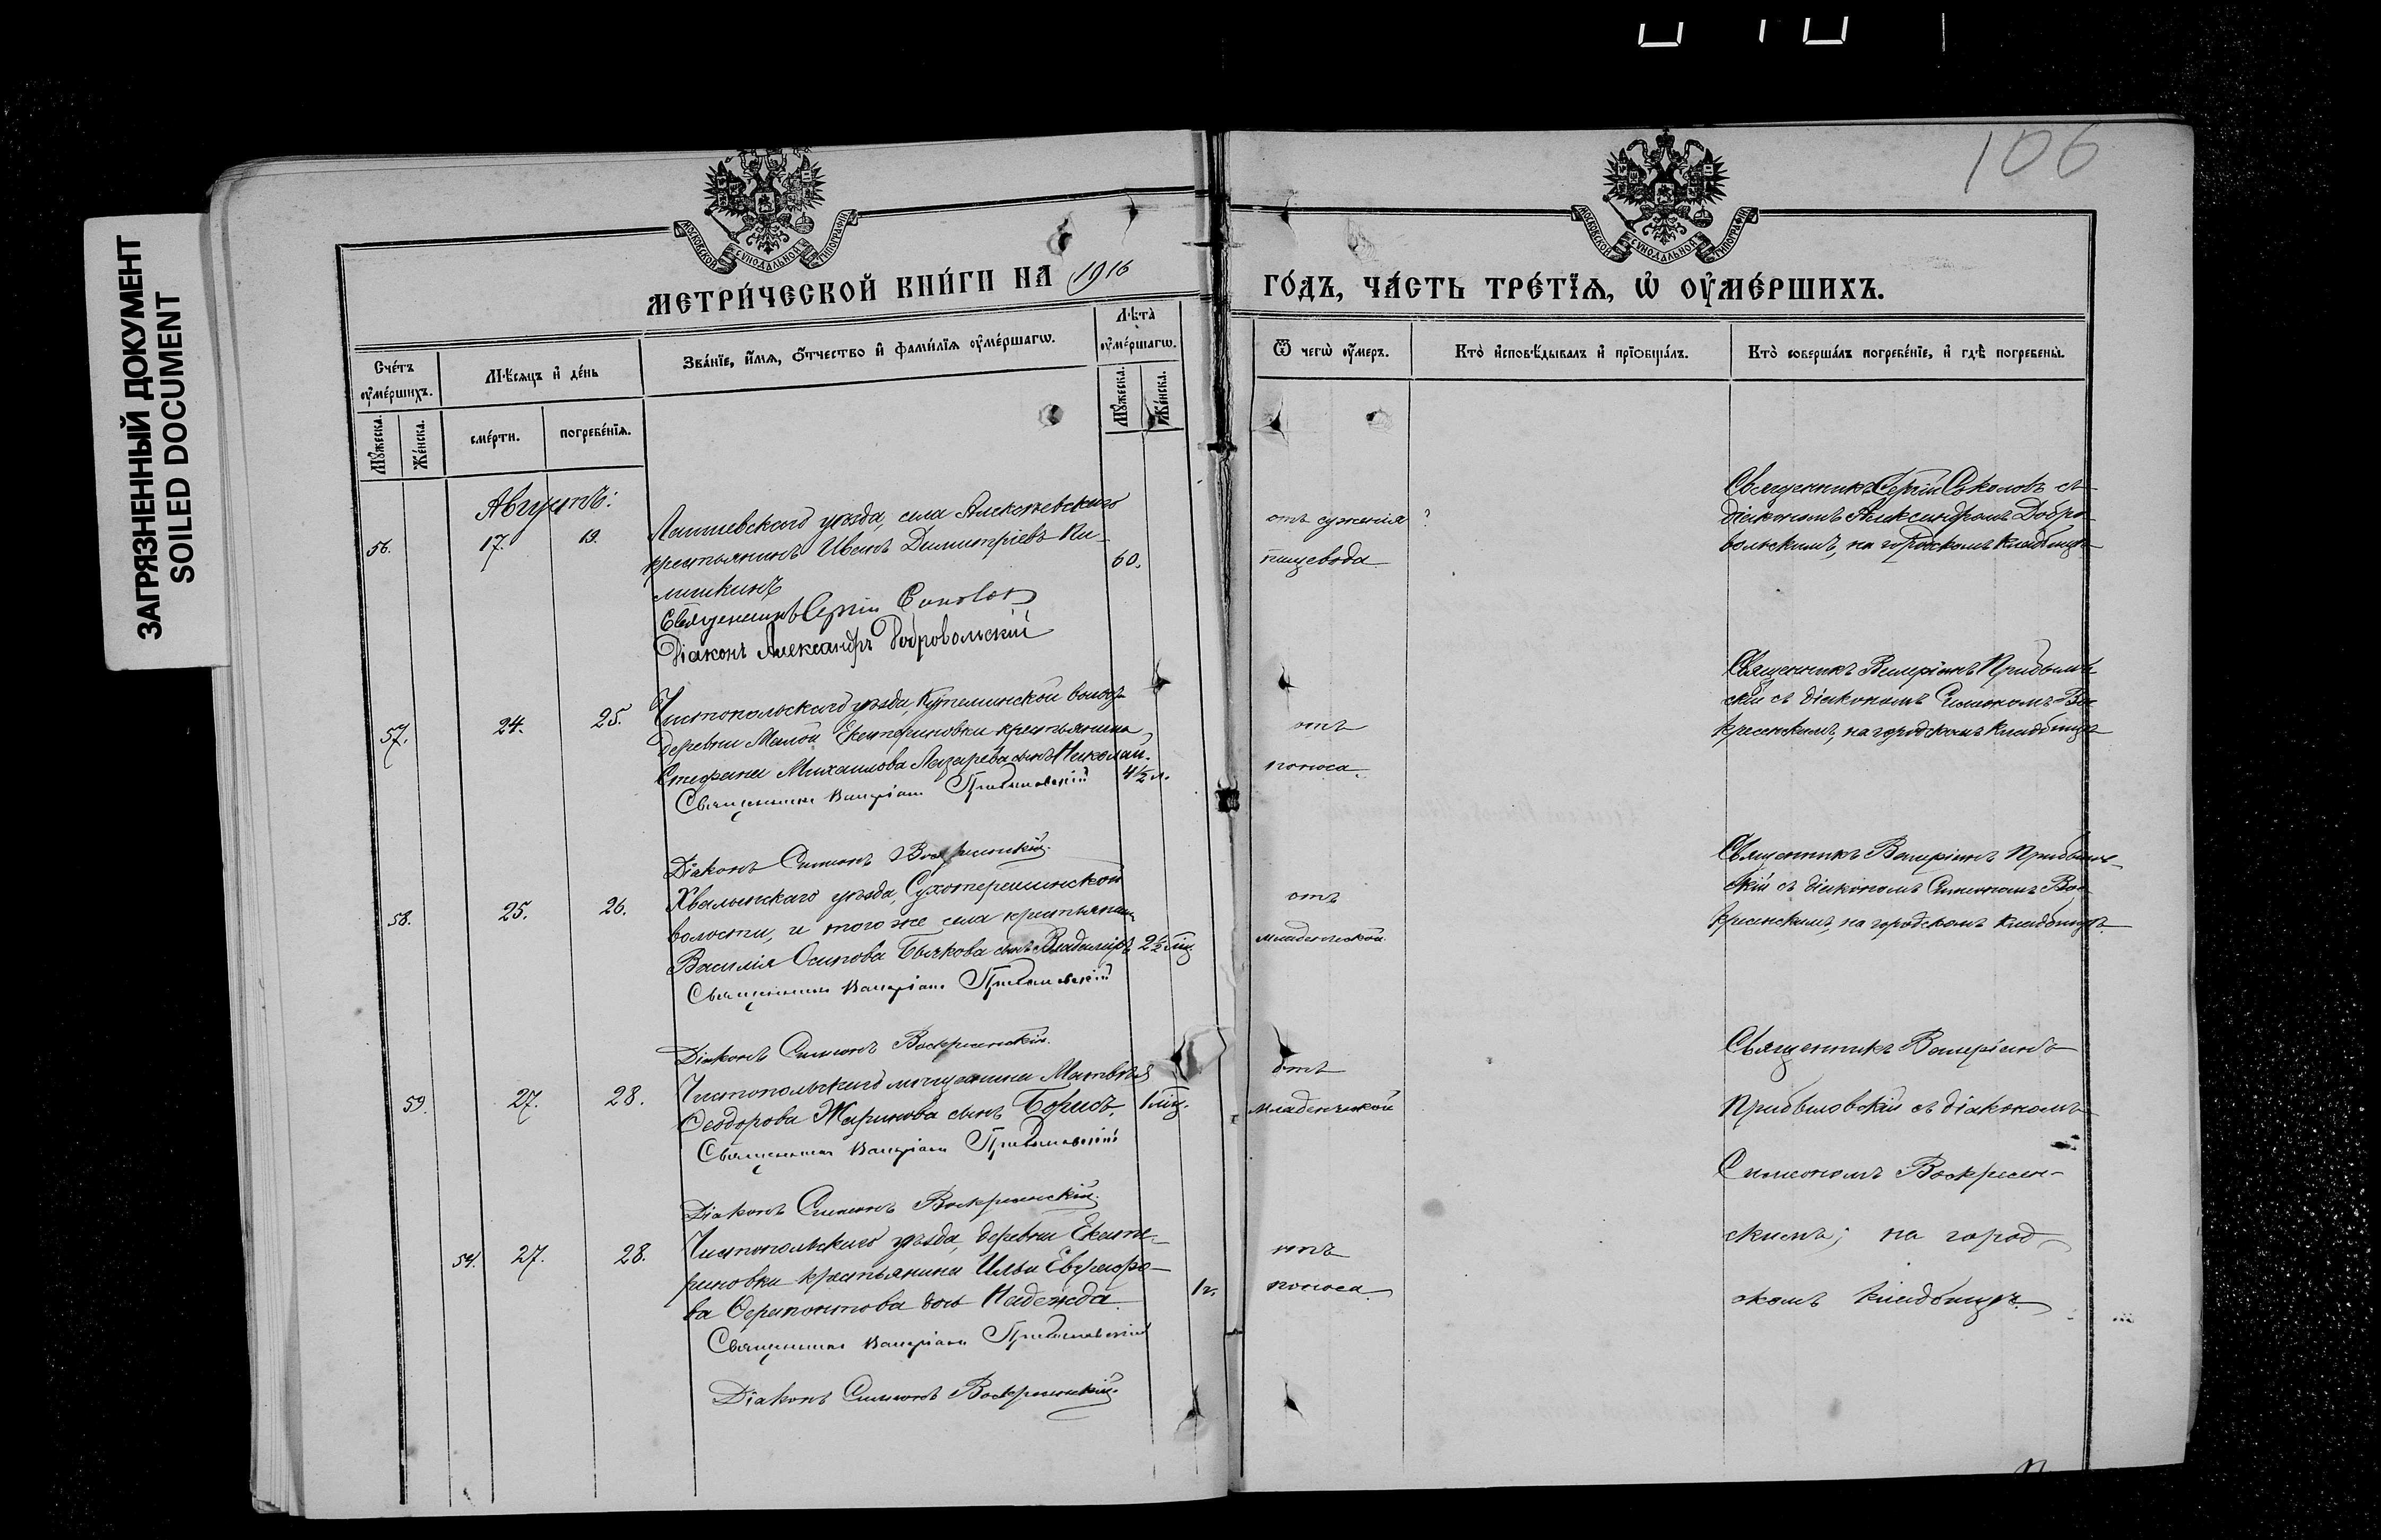 ЗАГРЯЗНЕННЫЙ ДОКУМЕНТ
SOILED DOCUMENT
106
МОСКОВСКОЙ СѴНОДАЛЬНОЙ ТИПОГРАФІИ
МОСКОВСКОЙ СѴНОДАЛЬНОЙ ТИПОГРАФІИ
МЕТРИ́ЧЕСКОЙ КНИ́ГИ НА 1916
ГО́ДЪ, ЧА́СТЬ ТРЕ́ТЇѦ, Ѡ҆ ОУ҆МЕ́РШИХЪ.
Сче́тъ оу҆ме́ршихъ.
Мꙋ́жеска.
Же́нска.
Мѣ́сѧцъ и҆ де́нь
сме́рти.
погребе́нїѧ.
Зва́нїе, и҆́мѧ, ѻ҆́тчество и҆ фами́лїѧ оу҆ме́ршагѡ.
Лѣ́та̀ оу҆ме́ршагѡ.
Мꙋ́жеска.
Же́нска.
Ѿ чегѡ̀ оу҆́меръ.
Кто̀ и҆сповѣ́дывалъ и҆ прїѡбща́лъ.
Кто̀ соверша́лъ погребе́нїе, и҆ гдѣ̀ погребены̀.
Августъ:
56.
17.
19.
Лаишевскаго уѣзда, села Алексѣевскаго
крестьянинъ Иванъ Димитріевъ Пи-
60.
Священникъ Сергій Соколовъ
Діаконъ Александръ Добровольскій
отъ суженія
пищевода
Священникъ Сергій Соколовъ съ
діакономъ Александромъ Добро-
вольскимъ, на городскомъ кладбищѣ
57.
24.
25.
Чистопольскаго уѣзда, Кутеминской волос.
деревни Малой Екатериновки крестьянина
Стефана Михаилова Лазарева сынъ Николай.
4½ л.
Священникъ Валеріанъ Прибыловскій
Діаконъ Симеонъ Воскресенскій.
отъ
поноса.
Священникъ Валеріанъ Прибылов-
скій съ діакономъ Симеономъ Вос-
кресенскимъ, на городскомъ кладбищѣ
58.
25.
26.
Хвалынскаго уѣзда, Сухотерешинской
волости, и того же села крестьянина
Василія Осипова Бычкова сынъ Владиміръ
2½ мц.
Священникъ Валеріанъ Прибыловскій
Діаконъ Симеонъ Воскресенскій.
отъ
младенческой.
Священникъ Валеріанъ Прибылов-
скій съ діакономъ Симеономъ Вос-
кресенскимъ, на городскомъ кладбищѣ.
59.
27.
28.
Чистопольскаго мѣщанина Матвѣя
Ѳеодорова Жаринова сынъ Борисъ.
1 мц.
Священникъ Валеріанъ Прибыловскій
Діаконъ Симеонъ Воскресенскій.
отъ
младенческой
Священникъ Валеріанъ
Прибыловскій съ діакономъ
Симеономъ Воскресен-
скимъ; на город-
скомъ кладбищѣ.
54.
27.
28.
Чистопольскаго уѣзда, деревни Екате-
риновки крестьянина Ильи Евграфо-
ва Ѳерапонтова дочь Надежда
1 г.
Священникъ Валеріанъ Прибыловскій
Діаконъ Симеонъ Воскресенскій.
отъ
поноса